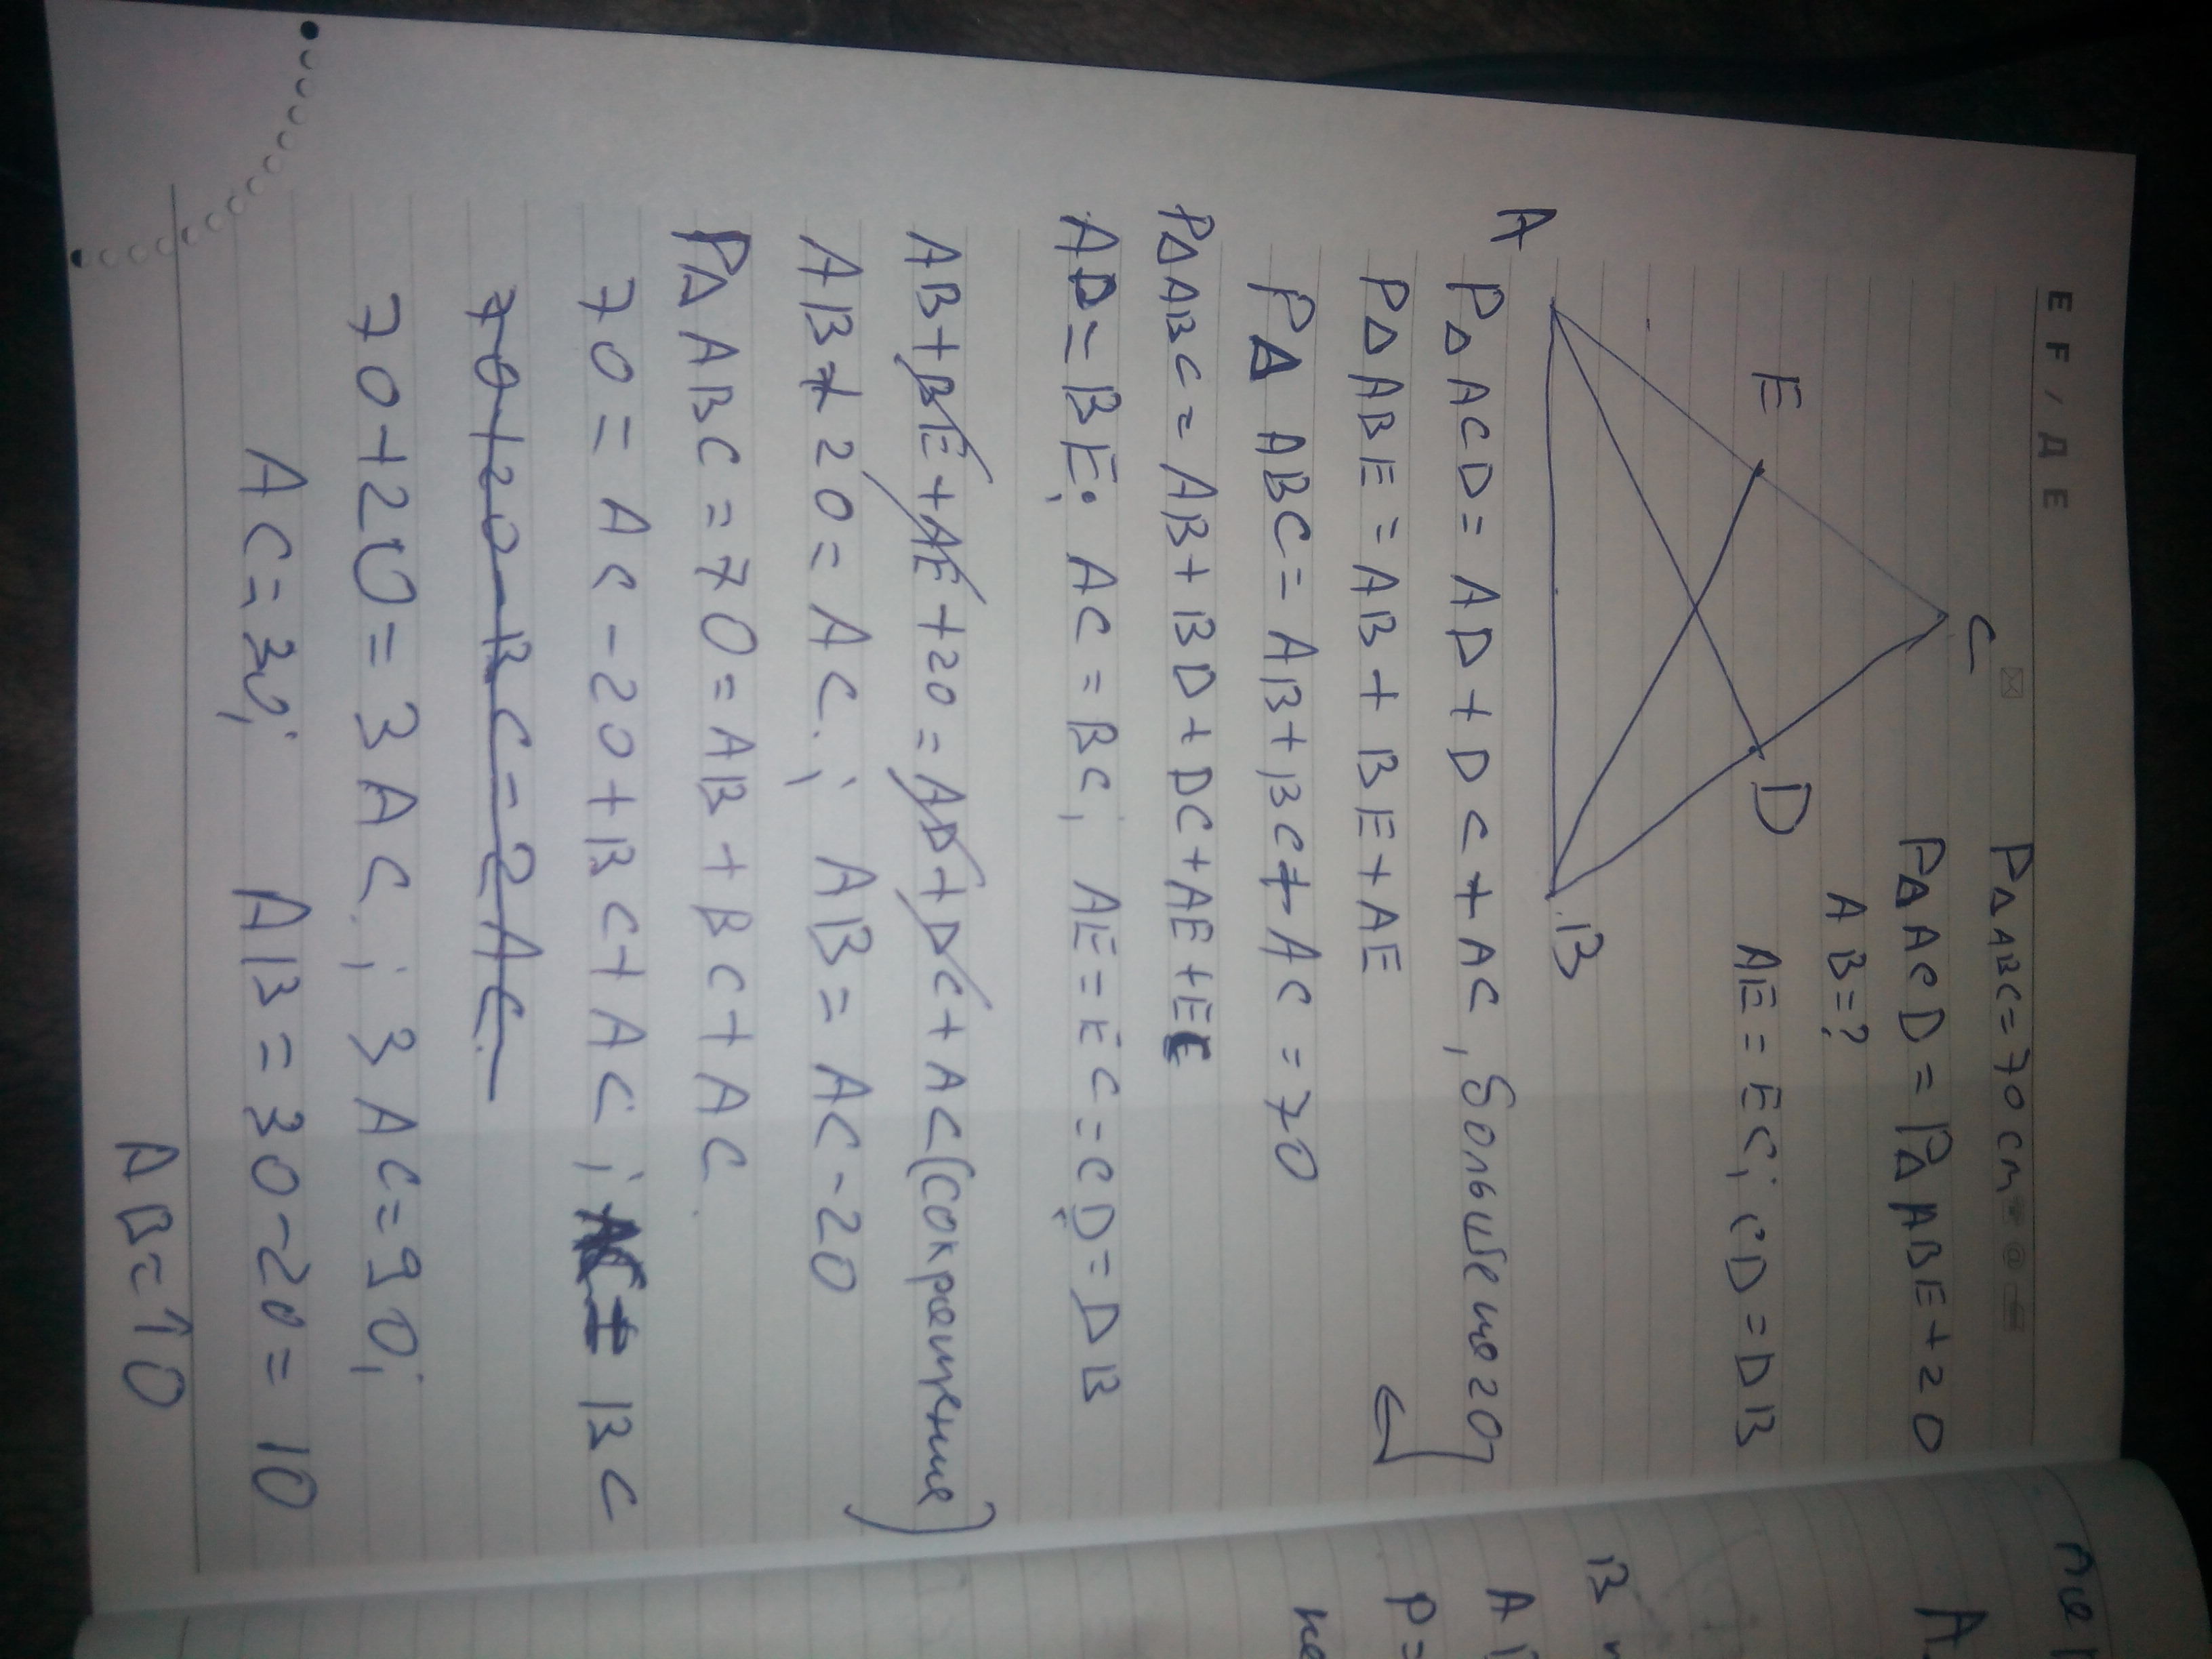 EF/ДЕ
P△ABC=70 cm
P△ACD=P△ABE+20
AB=?
AE=EC; CD=DB
C
E
D
A
B
P△ACD=AD+DC+AC, больше на 20
P△ABE=AB+BE+AE
P△ABC=AB+BC+AC=70
P△ABC=AB+BD+DC+AE+EC
AD=BE; AC=BC; AE=EC=CD=DB
AB+BE+AE+20=AD+DC+AC (сокращение)
AB+20=AC; AB=AC-20
P△ABC=70=AB+BC+AC.
70=AC-20+BC+AC; AC=BC
70+20-BC=2AC
70+20=3AC; 3AC=90;
AC=30; AB=30-20=10
AB=10
B
A
P=